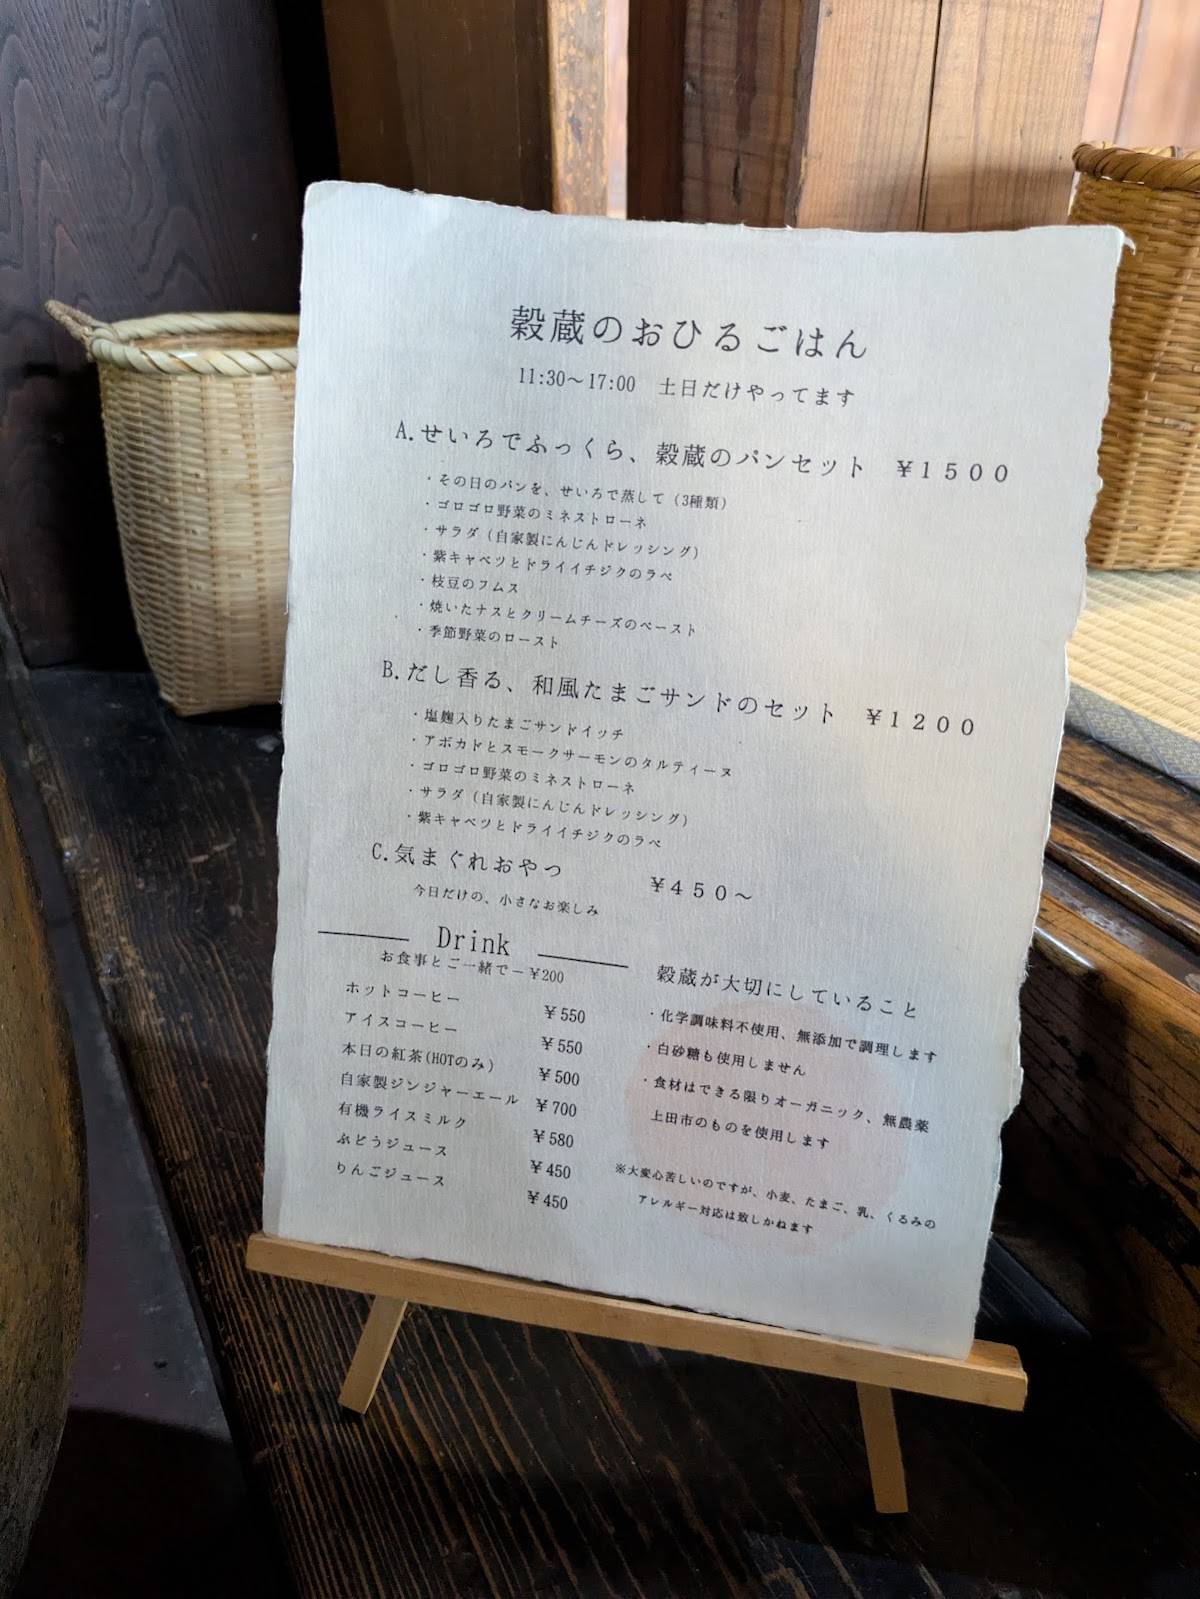 穀蔵のおひるごはん
11:30～17:00　土日だけやってます
A.せいろでふっくら、穀蔵のパンセット　￥１５００
・その日のパンを、せいろで蒸して（3種類）
・ゴロゴロ野菜のミネストローネ
・サラダ（自家製にんじんドレッシング）
・紫キャベツとドライイチジクのラペ
・枝豆のフムス
・焼いたナスとクリームチーズのペースト
・季節野菜のロースト
B.だし香る、和風たまごサンドのセット　￥１２００
・塩麹入りたまごサンドイッチ
・アボカドとスモークサーモンのタルティーヌ
・ゴロゴロ野菜のミネストローネ
・サラダ（自家製にんじんドレッシング）
・紫キャベツとドライイチジクのラペ
C.気まぐれおやつ　￥４５０～
今日だけの、小さなお楽しみ
Drink
お食事とご一緒で－￥200
ホットコーヒー　￥550
アイスコーヒー　￥550
本日の紅茶(HOTのみ)　￥500
自家製ジンジャーエール　￥700
有機ライスミルク　￥580
ぶどうジュース　￥450
りんごジュース　￥450
穀蔵が大切にしていること
・化学調味料不使用、無添加で調理します
・白砂糖も使用しません
・食材はできる限りオーガニック、無農薬
上田市のものを使用します
※大変心苦しいのですが、小麦、たまご、乳、くるみの
アレルギー対応は致しかねます